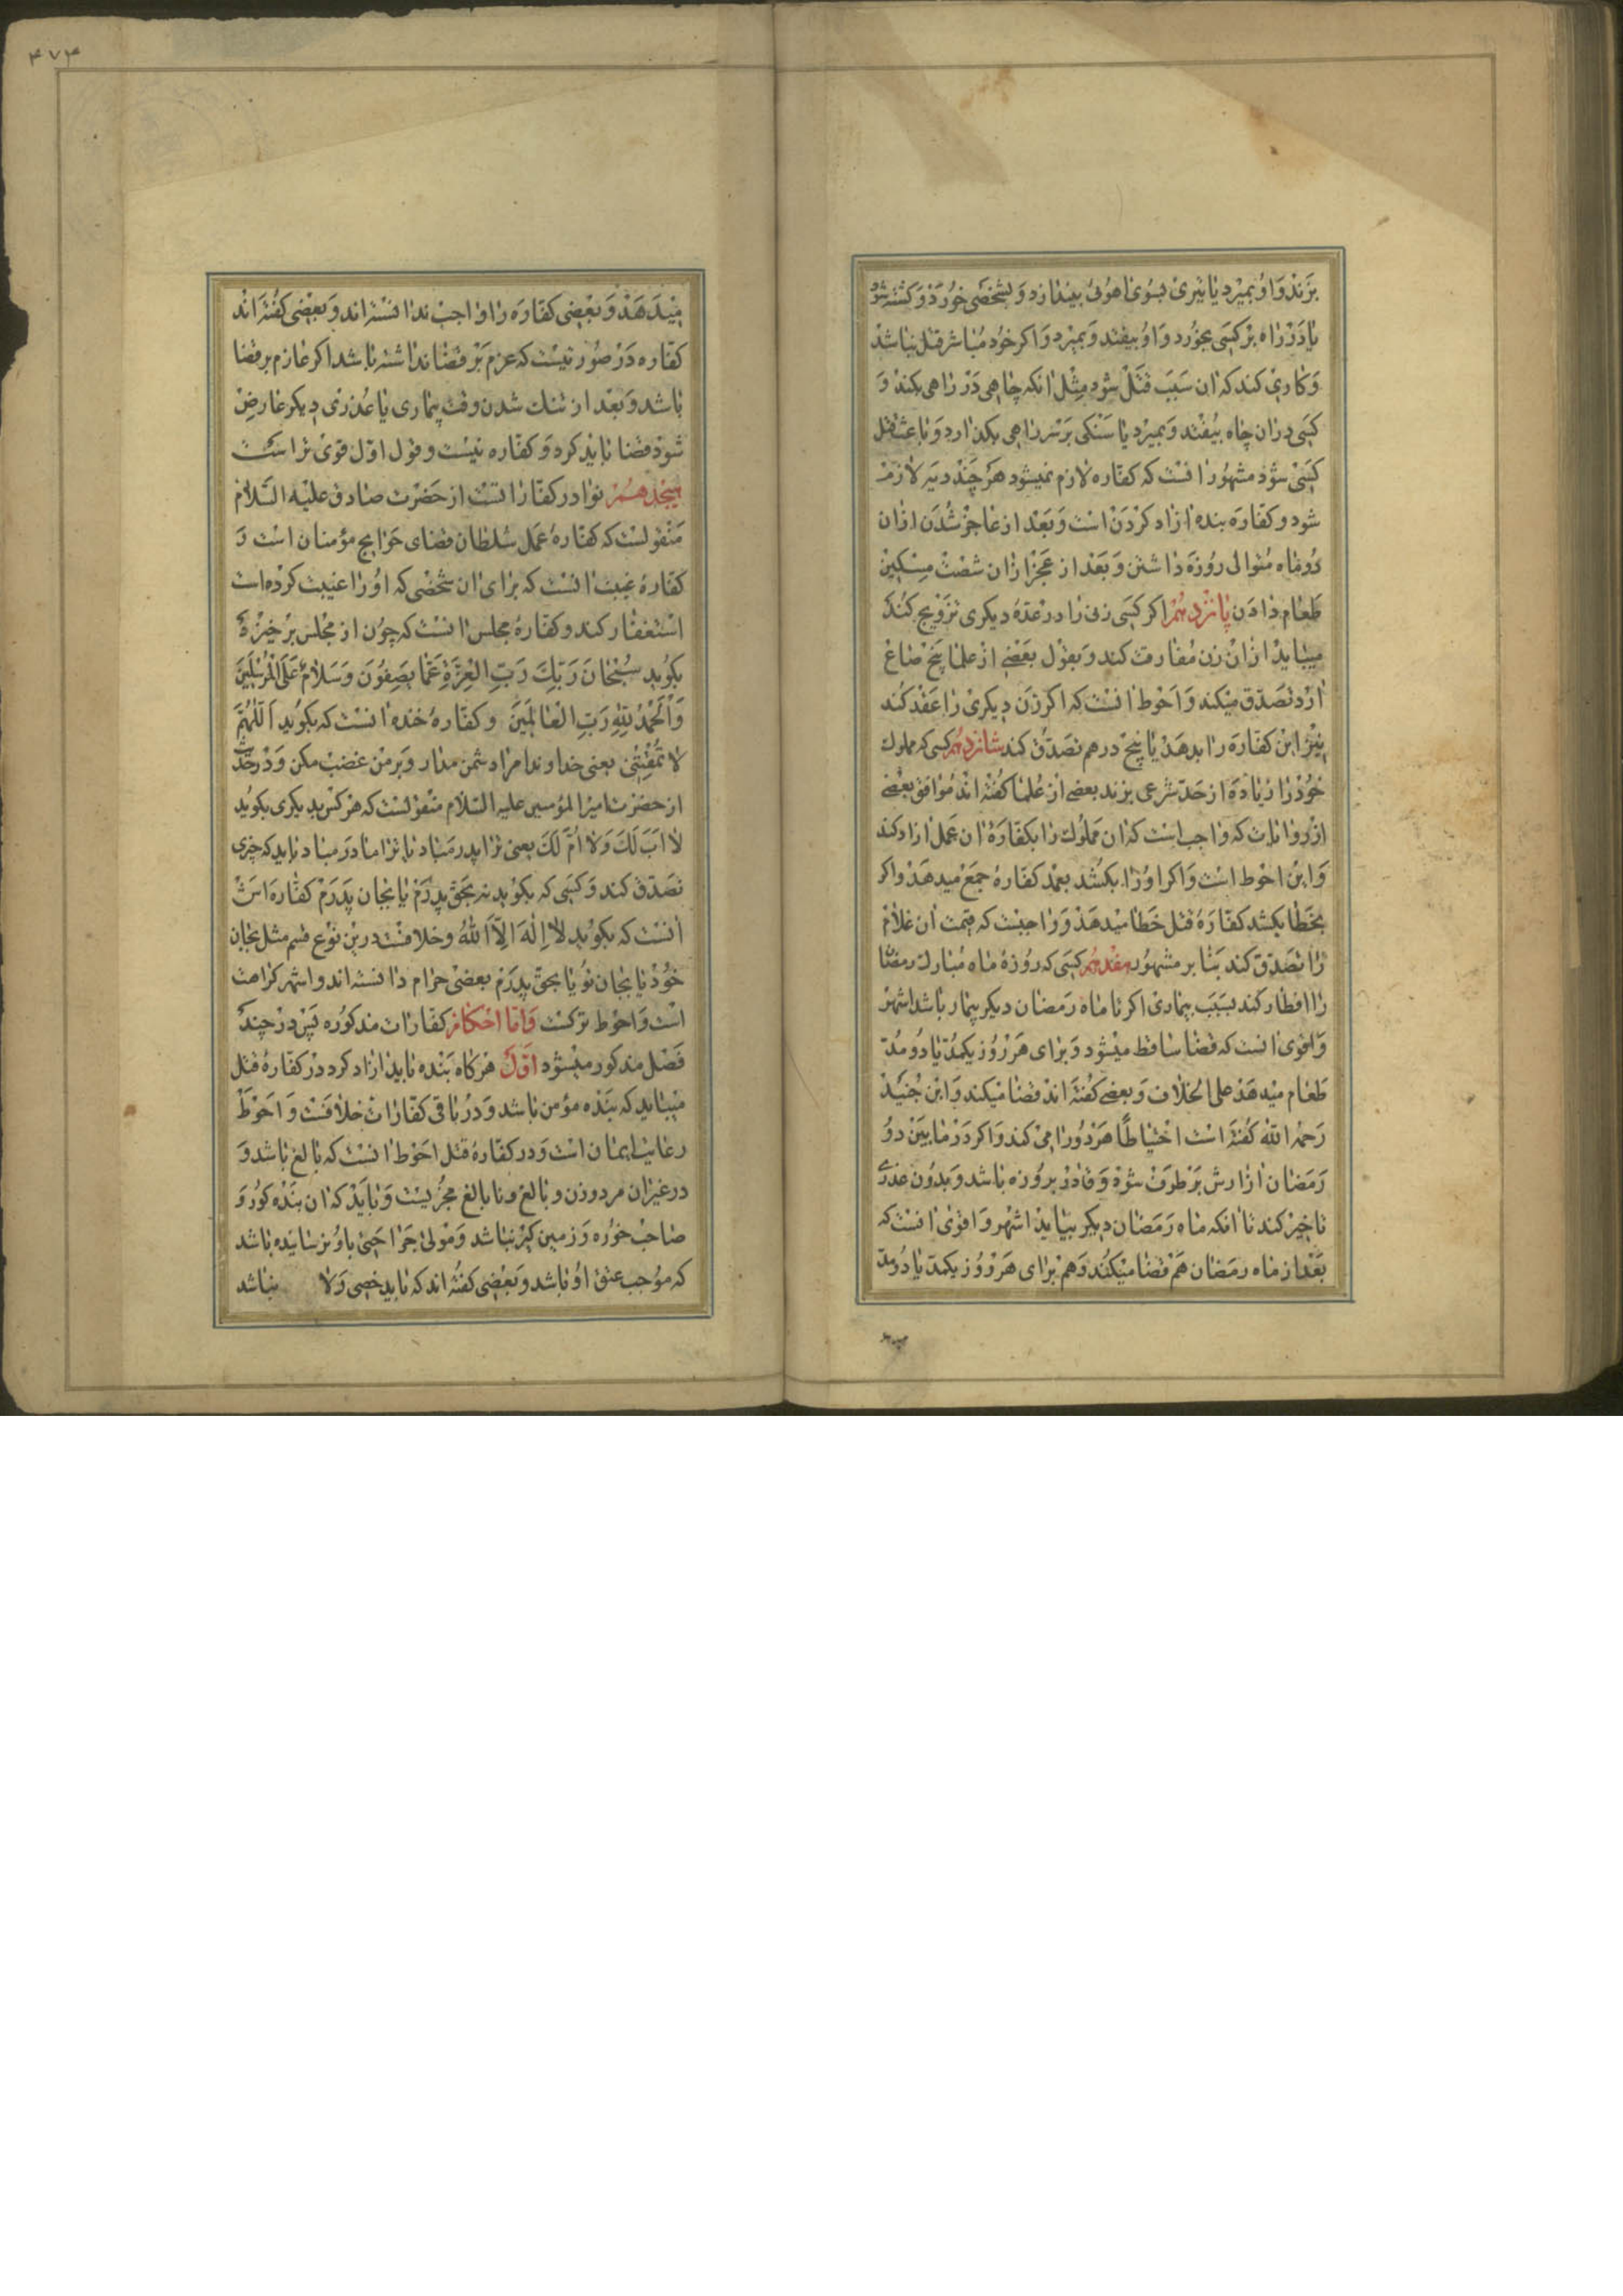 بزند و او بمیرد یا تیری بسوی اهوئی بیندازد و بشخصی خورد و کشته شود
یا در راه بر کسی بخورد و او بیفتد و بمیرد و اکر خود مباشر قتل نباشد
و کاری کند که ان سبب قتل شود مثل انکه چاهی در راهی بکند و
کسی در ان چاه بیفتد و بمیرد یا سنکی بر سر راهی بکذارد و باعث قتل
کسی شود مشهور انست که کفاره لازم نمیشود هر چند دیه لازم
شود و کفاره بنده ازاد کردن است و بعد از عاجز شدن ازان
دو ماه متوالی روزه داشتن و بعد از عجز ازان شصت مسکین
طعام دادن پانزدهم اکر کسی زنی را در عده دیکری تزویج کند
میباید ازان زن مفارقت کند و بقول بعضی از علما پنج صاع
ارد تصدق میکند و احوط انست که اکر زن دیکری را عقد کند
نیز این کفاره را بدهد یا پنج درهم تصدق کند شانزدهم کسی که مملوک
خود را زیاده از حد شرعی بزند بعضی از علما کفته اند موافق بعضی
از روایات که واجب است که ان مملوک را بکفاره ان عمل ازاد کند
و این احوط است و اکر او را بکشد بعمد کفاره جمع میدهد و اکر
بخطا بکشد کفاره قتل خطا میدهد و واجبست که قیمت ان غلام
را تصدق کند بنا بر مشهور هفدهم کسی که روزه ماه مبارک رمضان
را افطار کند بسبب بیماری اکر تا ماه رمضان دیکر بیمار باشد اشهر
و اقوی انست که قضا ساقط میشود و برای هر روز یکمد یا دو مد
طعام میدهد علی الخلاف و بعضی کفته اند قضا میکند و ابن جنید
رحمه الله کفته است احتیاطا هر دو را می کند و اکر در ما بین دو
رمضان ازارش برطرف شود و قادر بر روزه باشد و بدون عذری
تاخیر کند تا انکه ماه رمضان دیکر بیاید اشهر و اقوی انست که
بعد از ماه رمضان هم قضا میکند و هم برای هر روز یکمد یا دو مد
۴۷۳
میدهد و بعضی کفاره را واجب ندانسته اند و بعضی کفته اند
کفاره در صورتیست که عزم بر قضا نداشته باشد اکر عازم بر قضا
باشد و بعد از تنک شدن وقت بیماری یا عذری دیکر عارض
شود قضا باید کرد و کفاره نیست و قول اول قوی تر است
هیجدهم نوادر کفاراتست از حضرت صادق علیه السلام
منقولست که کفاره عمل سلطان قضای حوایج مؤمنان است و
کفاره غیبت انست که برای ان شخصی که او را غیبت کرده است
استغفار کند و کفاره مجلس انست که چون از مجلس برخیزد
بکوید سبحان ربک رب العزة عما یصفون و سلام علی المرسلین
و الحمد لله رب العالمین و کفاره خنده انست که بکوید اللهم
لا تمقتنی یعنی خداوندا مرا دشمن مدار و بر من غضب مکن و در حدیث
از حضرت امیر المؤمنین علیه السلام منقولست که هر کس بدیکری بکوید
لا اب لک و لا ام لک یعنی ترا پدر مباد یا ترا مادر مباد باید که چیزی
تصدق کند و کسی که بکوید نه بحق پدرم یا بجان پدرم کفاره اش
انست که بکوید لا اله الا الله و خلافست درین نوع قسم مثل بجان
خود یا بجان تو یا بحق پدرم بعضی حرام دانسته اند و اشهر کراهت
است و احوط ترکست و اما احکام کفارات مذکوره پس در چند
فصل مذکور میشود اول هر کاه بنده باید ازاد کرد در کفاره قتل
میباید که بنده مؤمن باشد و در باقی کفارات خلافست و احوط
رعایت ایمان است و در کفاره قتل احوط انست که بالغ باشد و
در غیر ان مرد و زن و بالغ و نابالغ مجزیست و باید که ان بنده کور و
صاحب خوره و زمین کیر نباشد و مولی جراحتی باو نرسانیده باشد
که موجب عتق او باشد و بعضی کفته اند که باید خصی و لا نباشد